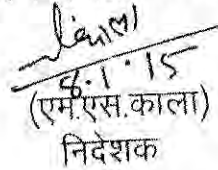 8.1.15
(एम.एस.काला)
निदेशक